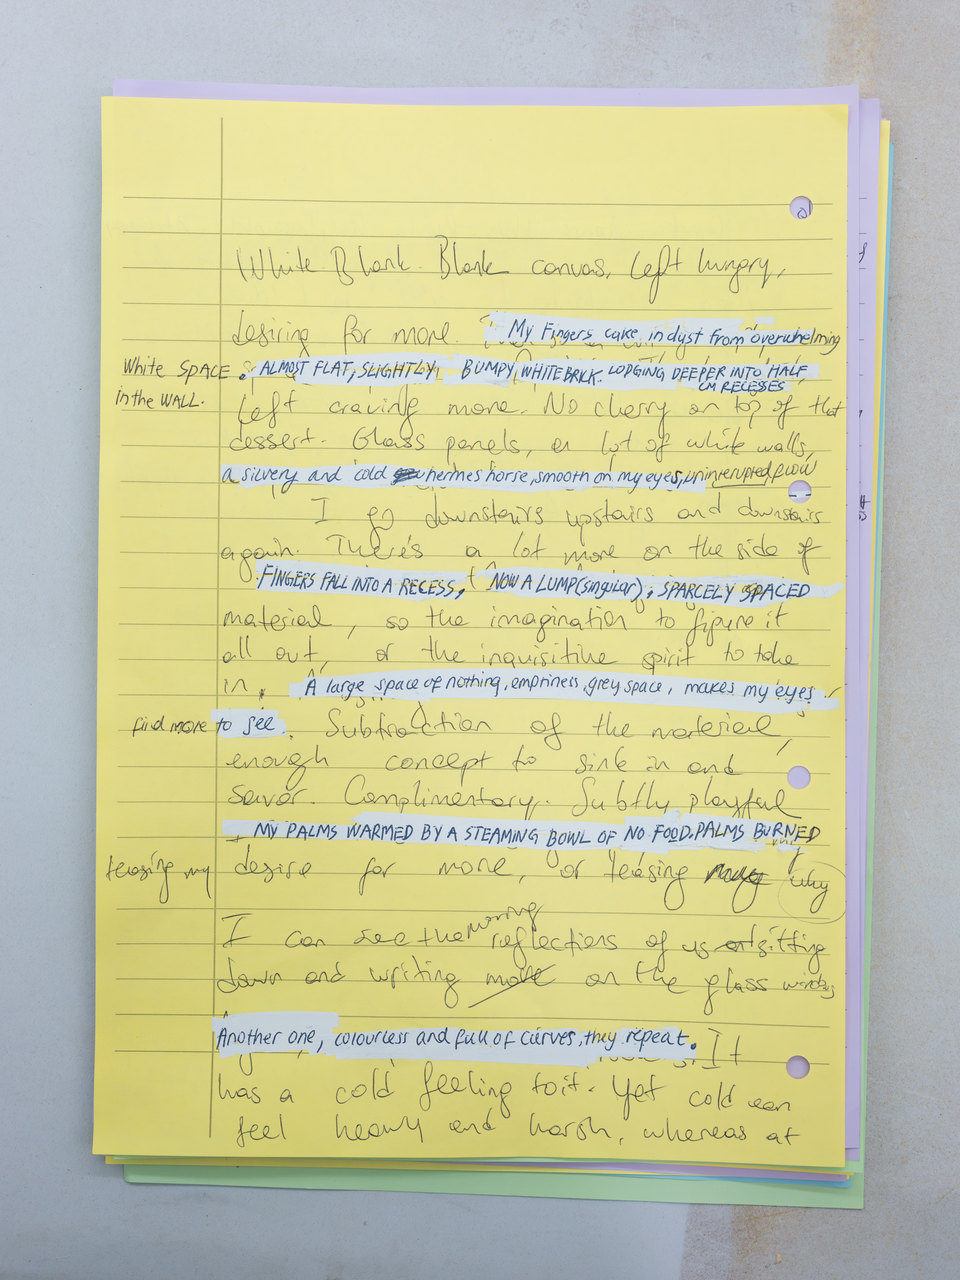 White. Blank. Blank canvas, left hungry,
desiring for more. My Fingers cake in dyst from overwhelming
White SPACE. ALMOST FLAT, SLIGHTLY BUMPY, WHITE BRICK. LODGING DEEPER INTO HALF
CM RECESSES
in the WALL.
Left craving more. No cherry on top of that
dessert. Glass panels, a lot of white walls,
a silvery and cold hermes horse, smooth on my eyes, uninterupted flow
I go downstairs upstairs and downstairs
again. There's a lot more on the side of
FINGERS FALL INTO A RECESS, NOW A LUMP (singular), SPARCELY SPACED
material, so the imagination to figure it
all out, or the inquisitive spirit to take
in. A large space of nothing, emptiness, grey space, makes my eyes
find more to see. Subtraction of the material,
enough concept to sink in and
savor. Complimentary. Subtly playful
MY PALMS WARMED BY A STEAMING BOWL OF NO FOOD. PALMS BURNED
teasing my desire for more, or teasing why
moving
I can see the reflections of us sitting
down and writing more on the glass windows
Another one, colourless and full of curves, they repeat. It
has a cold feeling to it. Yet cold can
feel heavy and harsh, whereas at